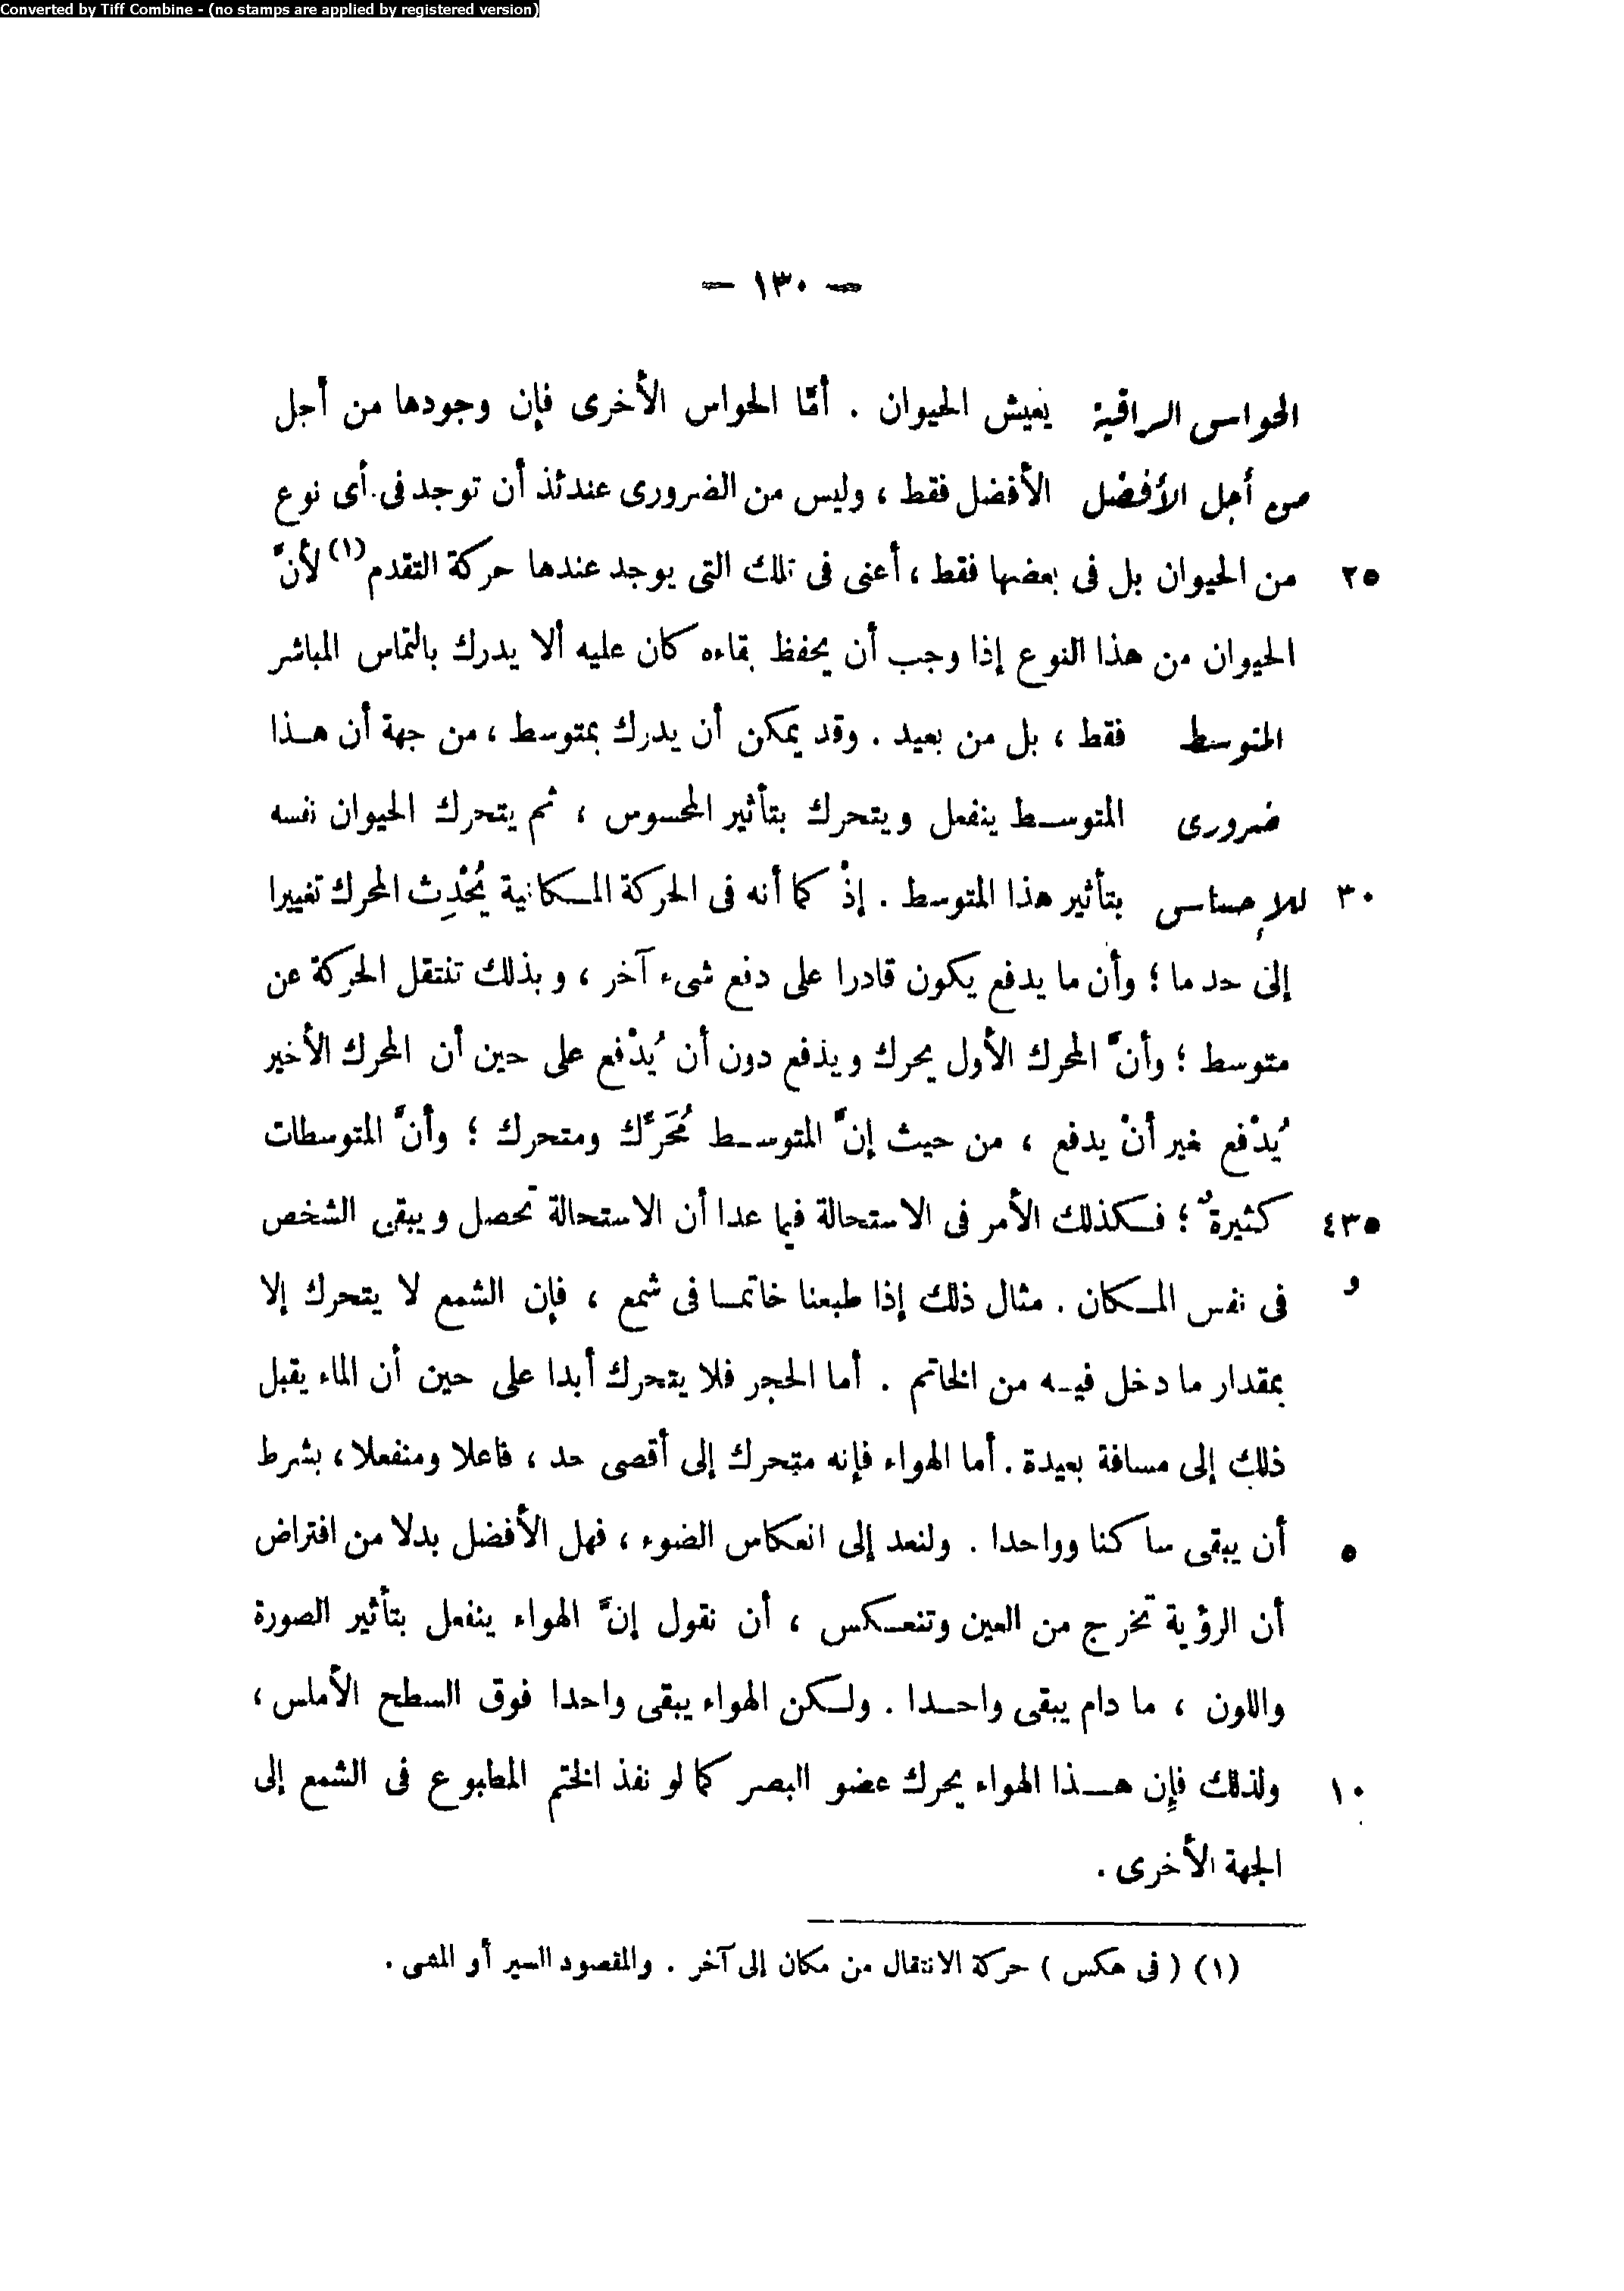 Converted by Tiff Combine - (no stamps are applied by registered version)
— ١٣٠ —
الحواس الراقية يعيش الحيوان . أمّا الحواس الأخرى فإن وجودها من أجل
من أجل الأفضل الأفضل فقط ، وليس من الضرورى عندئذ أن توجد فى أى نوع
٢٥ من الحيوان بل فى بعضها فقط ، أعنى فى تلك التى يوجد عندها حركة التقدم (١) لأنَّ
الحيوان من هذا النوع إذا وجب أن يحفظ بقاءه كان عليه ألا يدرك بالتماس المباشر
المتوسط فقط ، بل من بعيد . وقد يمكن أن يدرك بمتوسط ، من جهة أن هذا
ضرورى المتوسط ينفعل ويتحرك بتأثير المحسوس ، ثم يتحرك الحيوان نفسه
٣٠ للإحساس بتأثير هذا المتوسط . إذْ كما أنه فى الحركة المكانية يُحْدِث المحرك تغييرا
إلى حد ما ؛ وأن ما يدفع يكون قادرا على دفع شىء آخر ، وبذلك تنتقل الحركة عن
متوسط ؛ وأنَّ المحرك الأول يحرك ويدفع دون أن يُدْفع على حين أن المحرك الأخير
يُدْفع غير أنْ يدفع ، من حيث إنَّ المتوسط مُحَرِّك ومتحرك ؛ وأنَّ المتوسطات
٤٣٥ كثيرةٌ ؛ فكذلك الأمر فى الاستحالة فيما عدا أن الاستحالة تحصل ويبقى الشخص
و فى نفس المكان . مثال ذلك إذا طبعنا خاتما فى شمع ، فإن الشمع لا يتحرك إلا
بمقدار ما دخل فيه من الخاتم . أما الحجر فلا يتحرك أبدا على حين أن الماء يقبل
ذلك إلى مسافة بعيدة . أما الهواء فإنه متحرك إلى أقصى حد ، فاعلا ومنفعلا ، بشرط
٥ أن يبقى ساكنا وواحدا . ولنعد إلى انعكاس الضوء ، فهل الأفضل بدلا من افتراض
أن الرؤية تخرج من العين وتنعكس ، أن نقول إنَّ الهواء ينفعل بتأثير الصورة
واللون ، ما دام يبقى واحدا . ولكن الهواء يبقى واحدا فوق السطح الأملس ،
١٠ ولذلك فإن هذا الهواء يحرك عضو البصر كما لو نفذ الختم المطبوع فى الشمع إلى
الجهة الأخرى .
(١) ( فى هكس ) حركة الانتقال من مكان إلى آخر . والمقصود السير أو المشى .